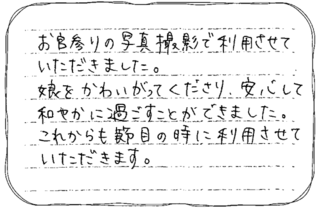 お宮参りの写真撮影で利用させて
いただきました。
娘をかわいがってくださり、安心して
和やかに過ごすことができました。
これからも節目の時に利用させて
いただきます。